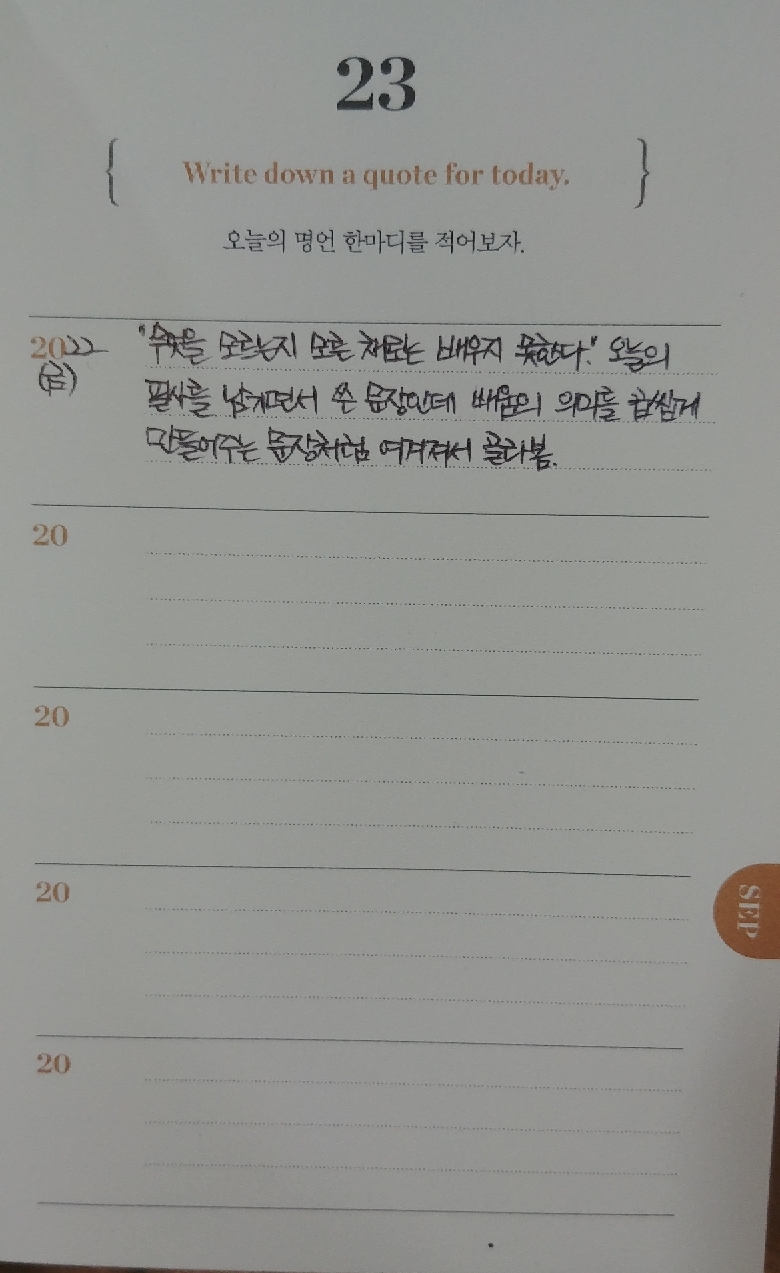 23
{ Write down a quote for today. }
오늘의 명언 한마디를 적어보자.
2022 "무엇을 모르는지 모른 채로는 배우지 못한다." 오늘의
(금) 필사를 남기면서 쓴 문장인데 배움의 의미를 곱씹게
만들어주는 문장처럼 여겨져서 골라봄.
20
20
20
SEP
20